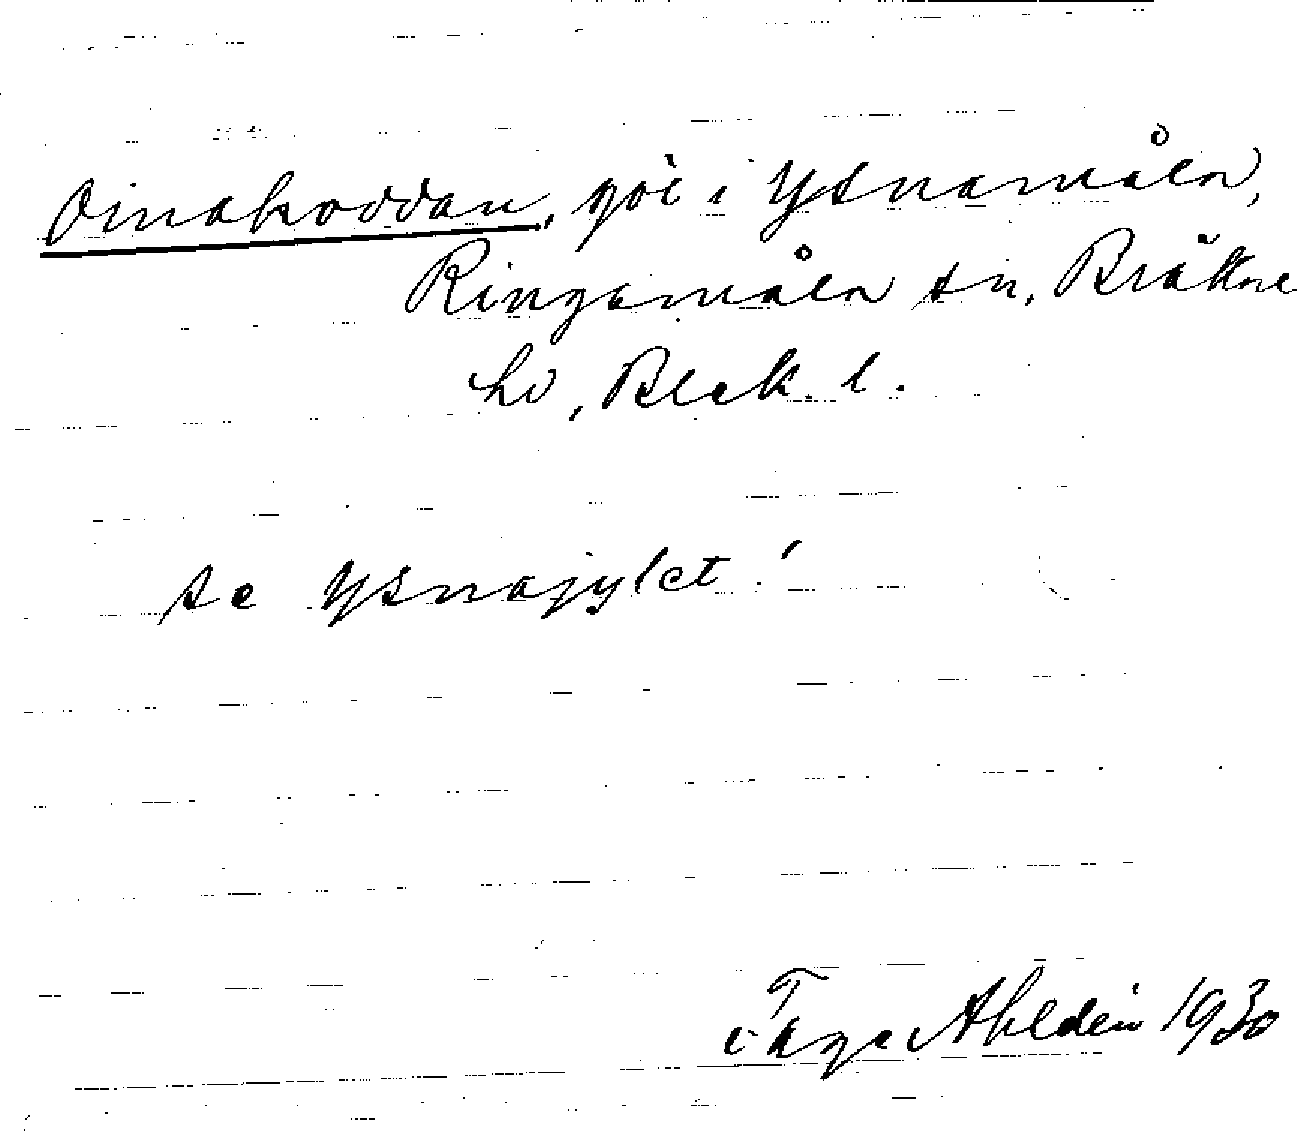 Oinakoddan, göl i Ysnamåla,
Ringamåla sn, Bräkne
hd, Blek. l.
se Ysnagylet!
Tage Ahldén 1930